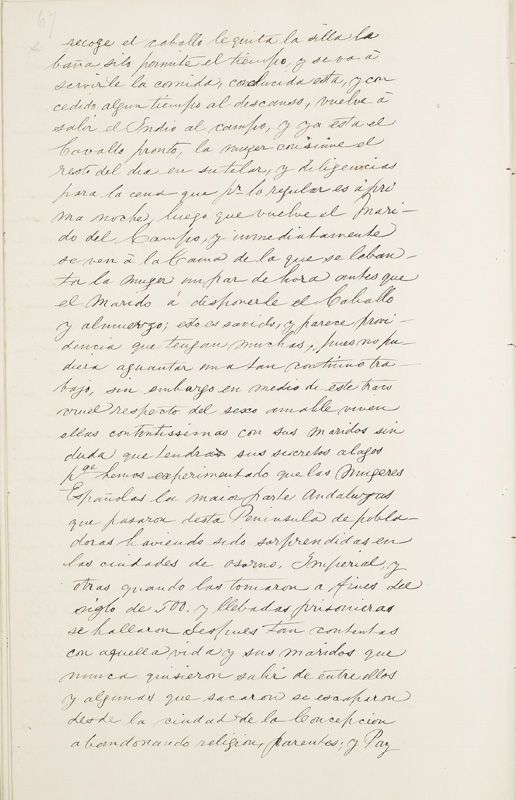 67
recoge el caballo le quita la silla la
baña silo permite el tiempo, y se va à
servirle la comida, concluida esta, y con
cedido algun tiempo al descanso, vuelve à
salir el Indio al campo, y ya esta el
Cavallo pronto, la muger consume el
resto del dia en su telar, y diligencias
para la cena que pr. lo regular es à pri
ma noche, luego que vuelve el Mari-
do del Campo, y immediatamente
se ven à la Cama de la que se leban-
ta la Muger un par de hora antes que
el Marido á disponerle el Caballo
y almuerzo; esto es savido, y parece provi-
dencia que tengan muchas, pues no pu-
diera aguantar una tan continuo tra-
bajo, sin embargo en medio de este trato
cruel respecto del sexo amable viven
ellas contentissimas con sus maridos sin
duda que tendrás sus secretos alagos
pqe. hemos experimentado que las Mugeres
Españolas la maior parte Andaluzas
que pasaron desta Peninsula de pobla-
doras haviendo sido sorprendidas en
las ciudades de Osorno, Imperial, y
otras quando las tomaron a fines del
siglo de 500. y llebadas prisioneras
se hallaron despues tan contentas
con aquella vida y sus maridos que
nunca quisieron salir de entre ellos
y algunas que sacaron se escaparon
desde la ciudad de la Concepcion
abandonando religion, parentes, y Pay